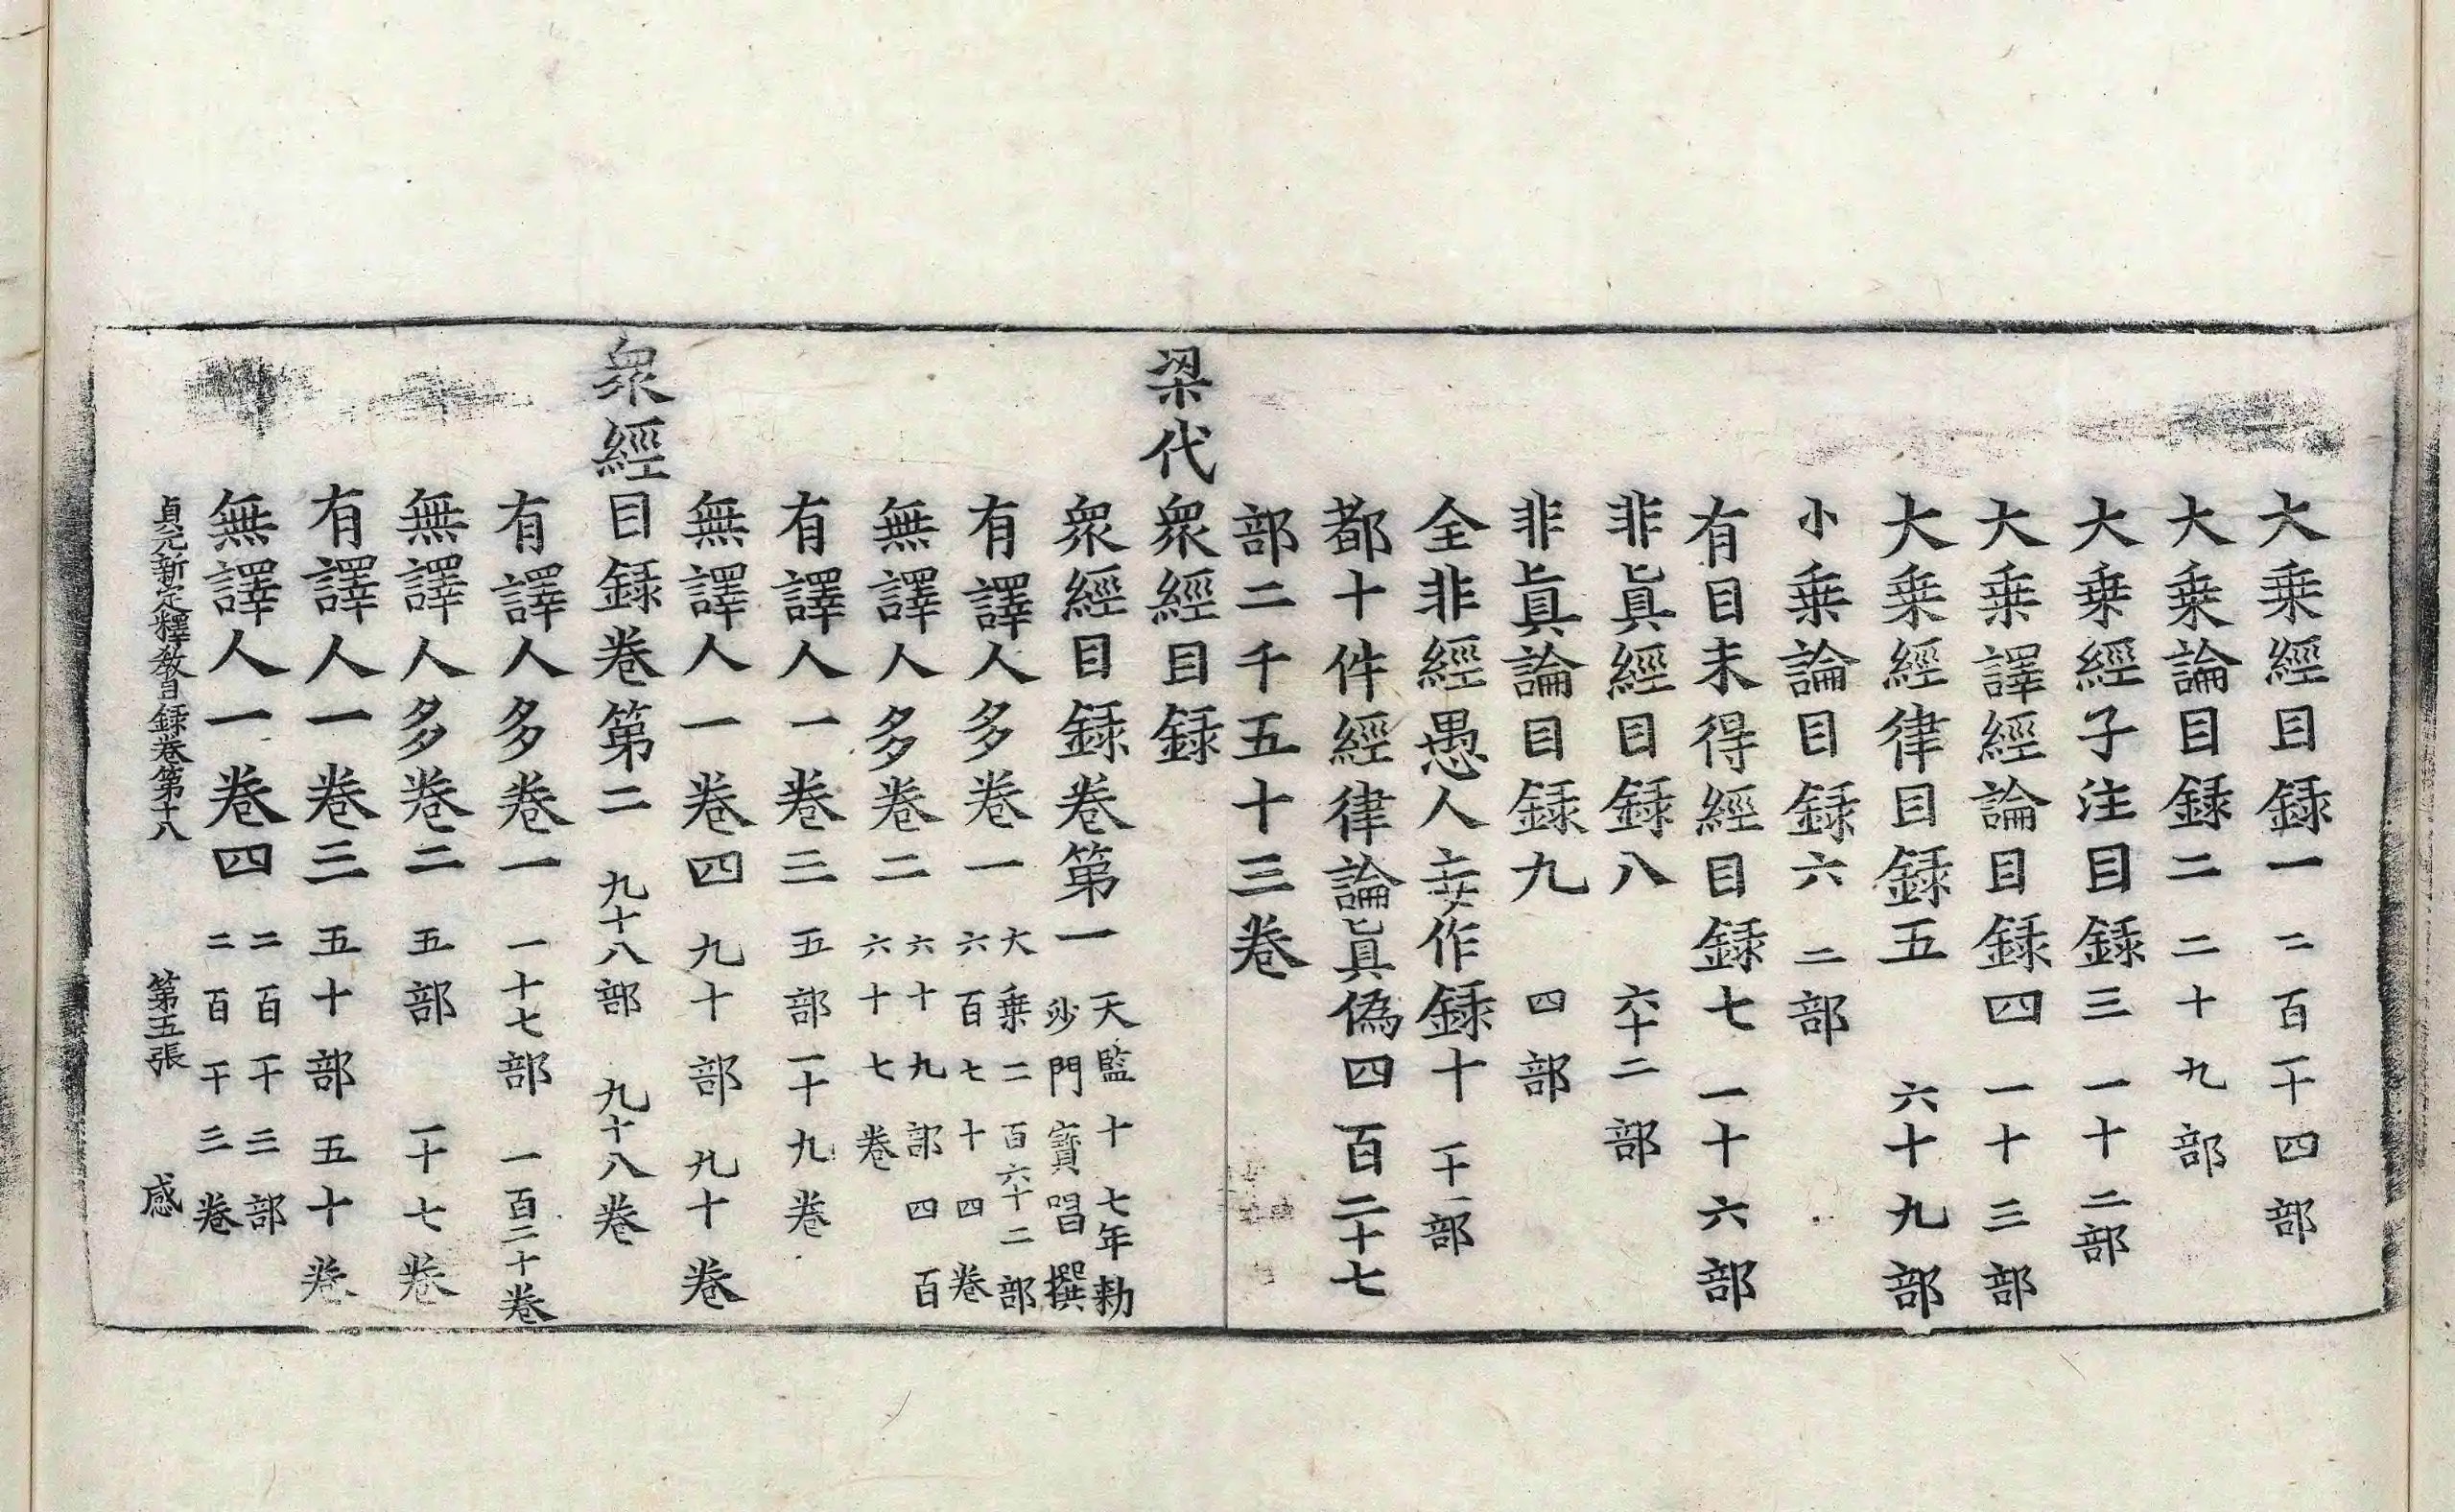 大乗經目録一二百一十四部
大乗論目録二二十九部
大乗經子注目録三一十二部
大乗譯經論目録四一十三部
大乗經律目録五六十九部
小乗論目録六二部
有目未得經目録七一十六部
非眞經目録八六十二部
非眞論目録九四部
全非經愚人妄作録十一十一部
都十件經律論眞偽四百二十七
部二千五十三卷
梁代衆經目録
衆經目録卷第一天監十七年勑
沙門寳唱撰
有譯人多卷一大乗二百六十二部
六百七十四卷
無譯人多卷二六十九部四百
六十七卷
有譯人一卷三五部一十九卷
無譯人一卷四九十部九十卷
衆經目録卷第二九十八部九十八卷
有譯人多卷一一十七部一百二十卷
無譯人多卷二五部一十七卷
有譯人一卷三五十部五十卷
無譯人一卷四二百一十三部
二百一十三卷
貞元新定釋教目録卷第十八第五張感